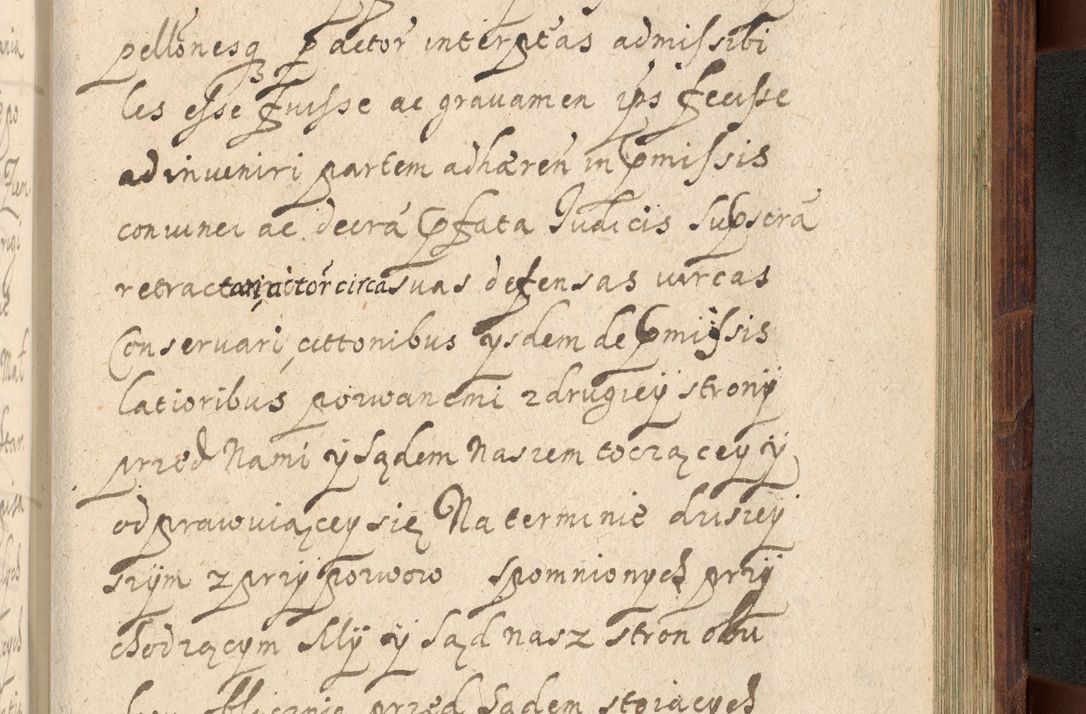 pellonesq p actor interptas admissibi
les esse fuisse ac grauamen ips fecisse
ad inueniri partem adhæren in pmissis
conuinci ac decra pfata Judicis supscra
retractari actor circa suas defensas uircas
Conseruari cittonibus ysdem de pmissis
latioribus pozwanemi z drugiey strony
przed Nami y sądem Naszem toczącey y
odprawuiącey się Na terminie dzisiey
szym z przypozwow spomnionych przy
chodzącym My y sąd nasz stron obu
oblicznie przed sądem stoiących